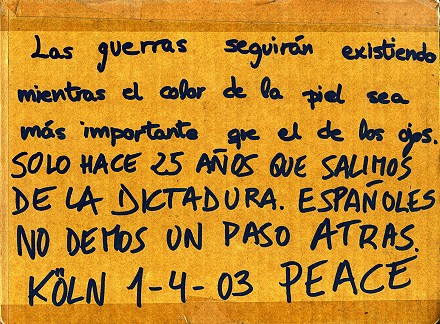 Las guerras seguirán existiendo
mientras el color de la piel sea
más importante que el de los ojos.
SOLO HACE 25 AÑOS QUE SALIMOS
DE LA DICTADURA. ESPAÑOLES
NO DEMOS UN PASO ATRAS.
KÖLN 1-4-03 PEACE